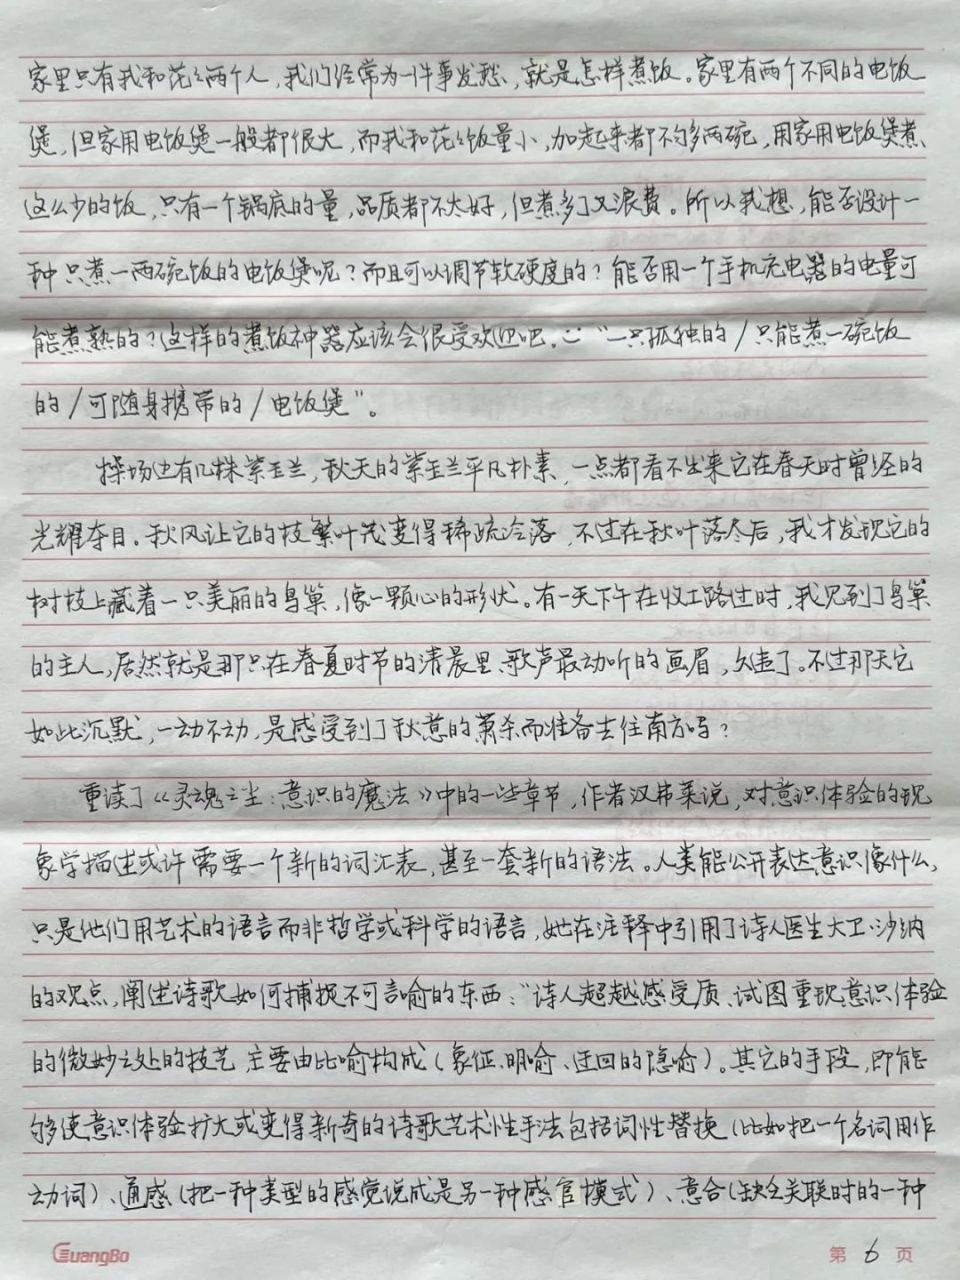 家里只有我和花花两个人，我们经常为一件事发愁，就是怎样煮饭。家里有两个不同的电饭
煲，但家用电饭煲一般都很大，而我和花花饭量小，加起来都不够两碗，用家用电饭煲煮
这么少的饭，只有一个锅底的量，品质都不太好，但煮多了又浪费。所以我想，能否设计一
种只煮一两碗饭的电饭煲呢？而且可以调节软硬度的？能否用一个手机充电器的电量可
能煮熟的？这样的煮饭神器应该会很受欢迎吧。“一只孤独的/只能煮一碗饭
的/可随身携带的/电饭煲”。
操场边有几株紫玉兰，秋天的紫玉兰平凡朴素，一点都看不出来它在春天时曾经的
光耀夺目。秋风让它的枝繁叶茂变得稀疏冷落，不过在秋叶落尽后，我才发现它的
树枝上藏着一只美丽的鸟巢，像一颗心的形状。有一天下午在收工路过时，我见到了鸟巢
的主人，居然就是那只在春夏时节的清晨里歌声最动听的画眉，久违了。不过那天它
如此沉默，一动不动，是感受到了秋意的萧杀而准备去往南方吗？
重读了《灵魂之尘：意识的魔法》中的一些章节，作者汉弗莱说，对意识体验的现
象学描述或许需要一个新的词汇表，甚至一套新的语法。人类能公开表达意识像什么，
只是他们用艺术的语言而非哲学或科学的语言，她在注释中引用了诗人医生大卫·沙纳
的观点，阐述诗歌如何捕捉不可言喻的东西：“诗人超越感受质、试图重现意识体验
的微妙之处的技艺，主要由比喻构成（象征、明喻、迂回的隐喻）。其它的手段，即能
够使意识体验扩大或变得新奇的诗歌艺术性手法包括词性替换（比如把一个名词用作
动词）、通感（把一种类型的感觉说成是另一种感官模式）、意合（缺乏关联时的一种
GuangBo
第 6 页